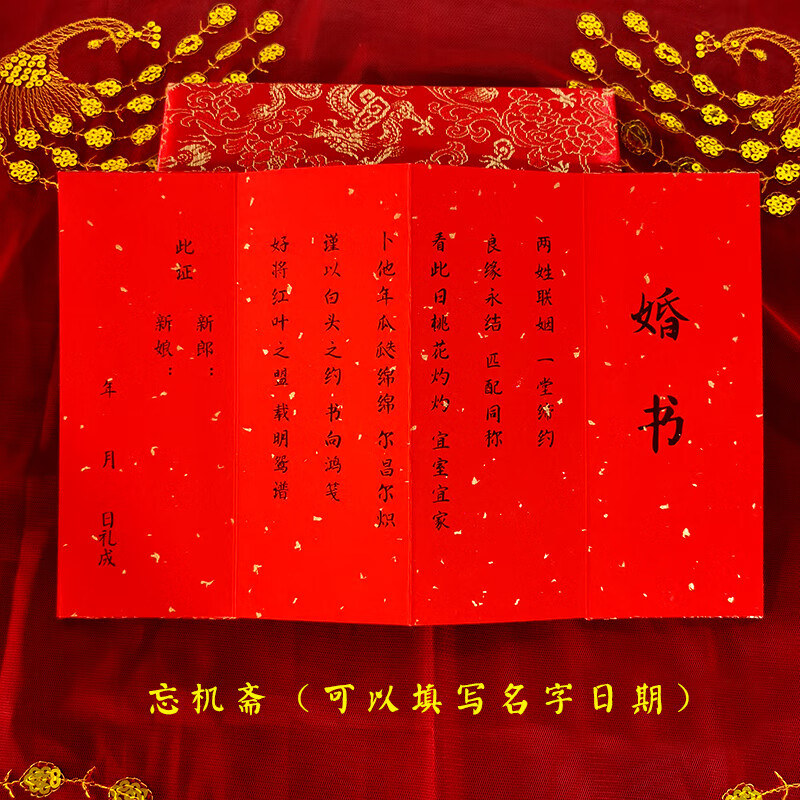 婚书
两姓联姻 一堂缔约
良缘永结 匹配同称
看此日桃花灼灼 宜室宜家
卜他年瓜瓞绵绵 尔昌尔炽
谨以白头之约 书向鸿笺
好将红叶之盟 载明鸳谱
此证
新郎：
新娘：
年 月 日礼成
忘机斋（可以填写名字日期）